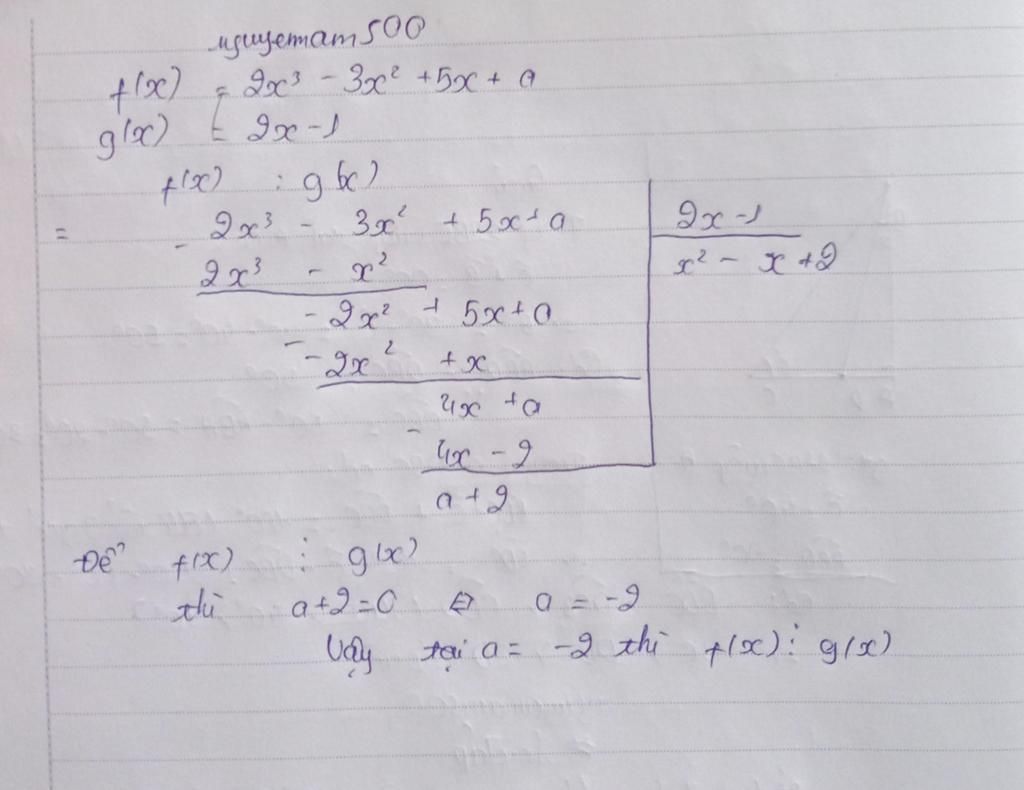 nguyetnam500
f(x) = 2x³ - 3x² + 5x + a
g(x) = 2x - 1
f(x) : g(x)
= 2x³ - 3x² + 5x + a | 2x - 1
- 2x³ - x² | x² - x + 2
- 2x² + 5x + a
- - 2x² + x
4x + a
- 4x - 2
a + 2
Để f(x) ⋮ g(x)
thì a + 2 = 0 ⇔ a = -2
Vậy tại a = -2 thì f(x) ⋮ g(x)